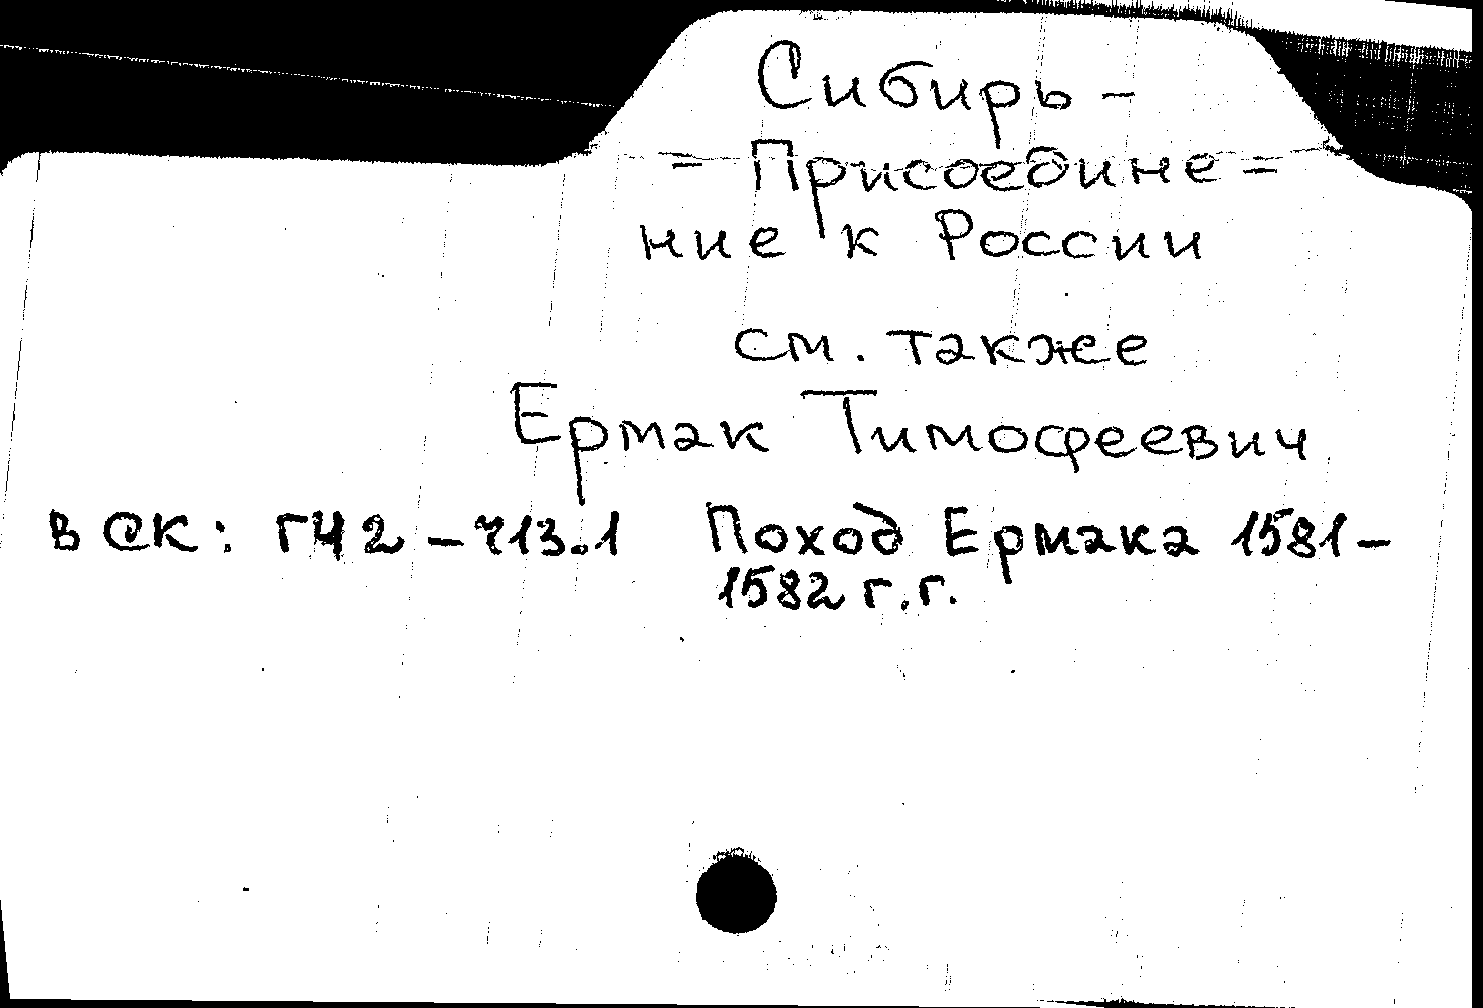 Сибирь -
- Присоедине =
ние к России
см. также
Ермак Тимофеевич
в СК: Г42-713.1 Поход Ермака 1581-
1582 г.г.